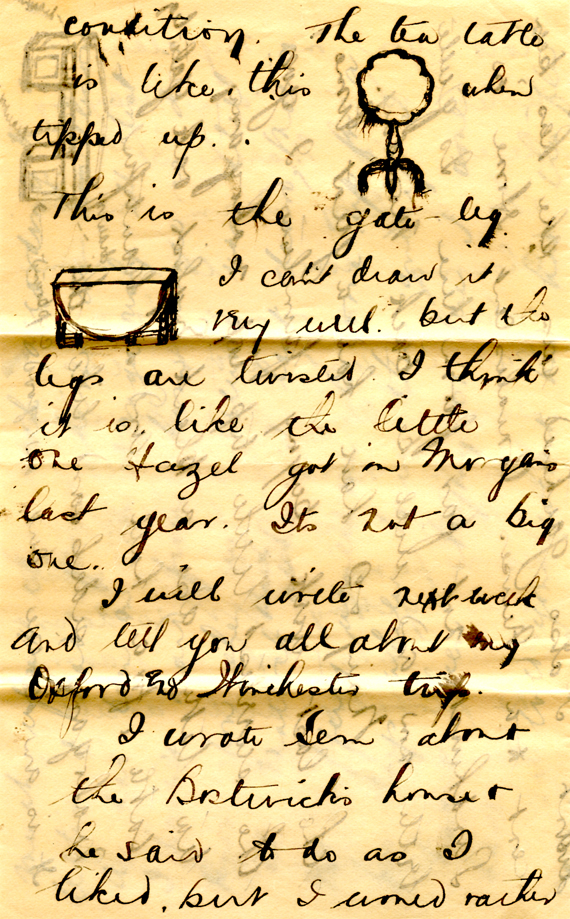 condition. The tea table
is like this when
tipped up.
This is the gate leg.
I can't draw it
very well. but the
legs are twisted. I think
it is like the little
one Hazel got in Morgans
last year. Its not a big
one.
I will write next week
and tell you all about my
Oxford & Winchester trip.
I wrote about
the Bostwicks house &
he said to do as I
liked, but I rather